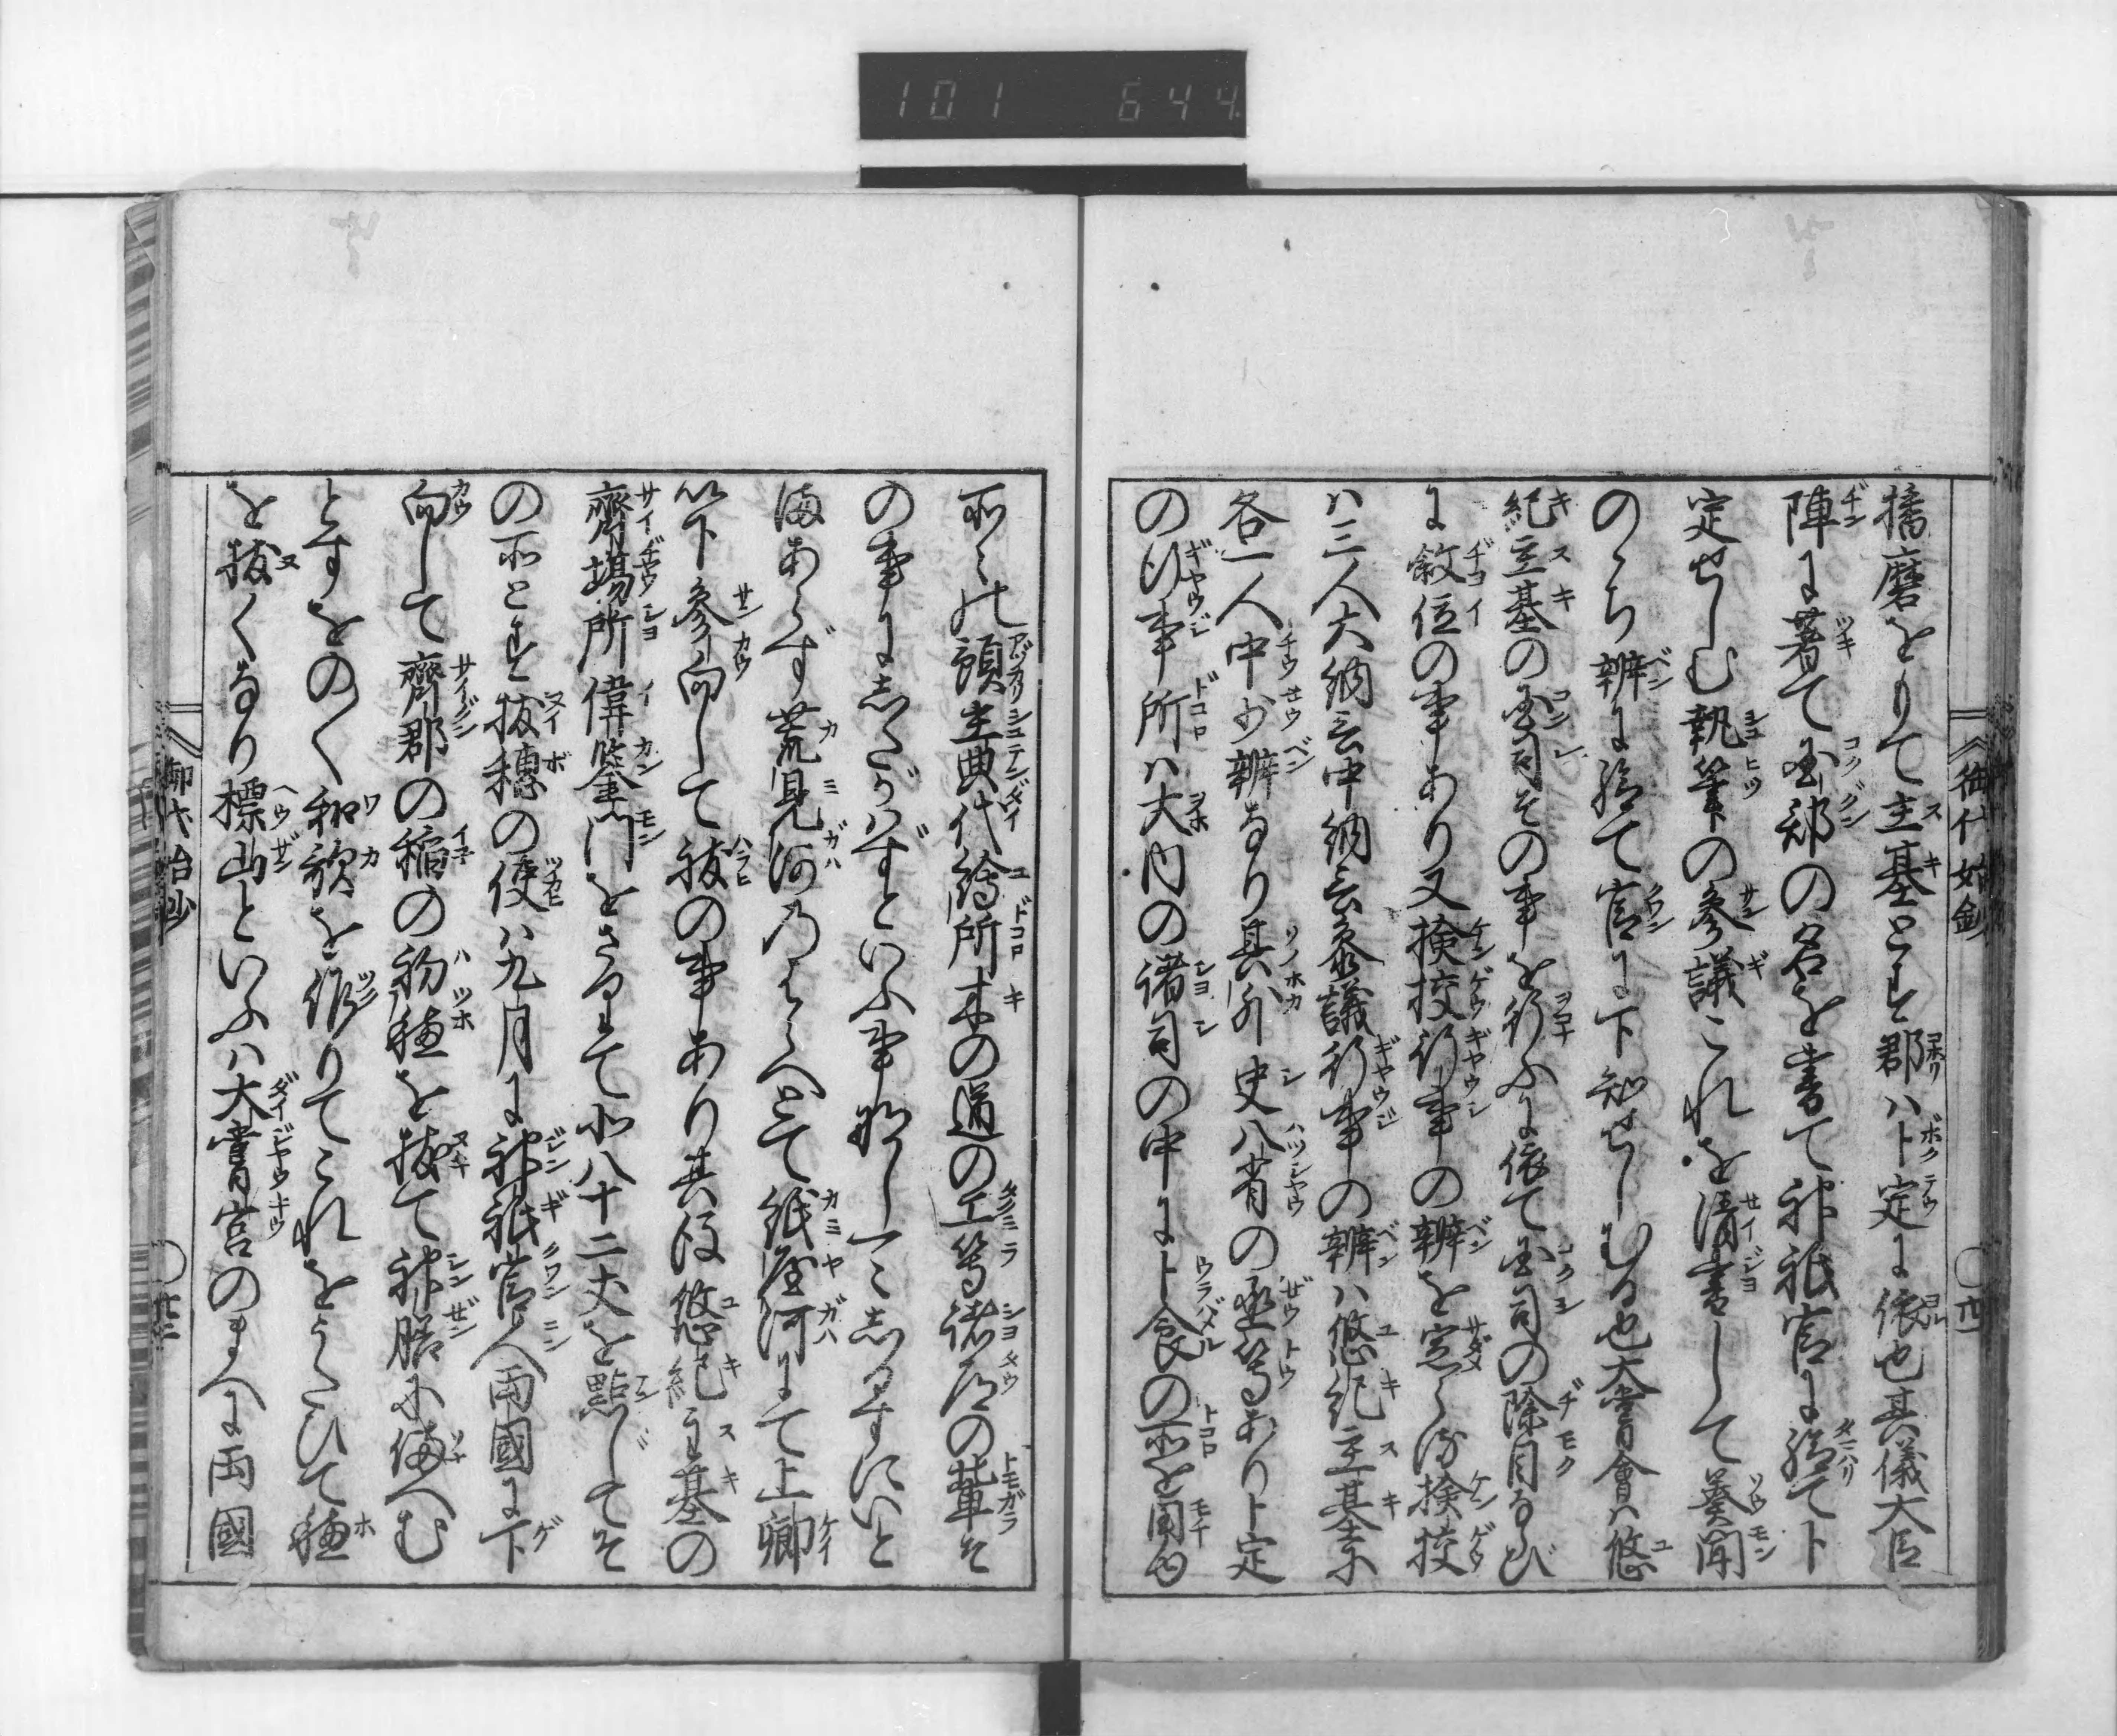 101 644
御代始鈔
播磨をもりて主基とす郡ハ卜定に依也其儀大臣
陣に著て国郡の名を書て神祇官に給て卜
定せしむ執筆の参議これを清書して奏聞
のゝち辨に給て官に下知せしむる也大嘗會ハ悠
紀主基の国司その事を行ふに依て国司の除目ならび
に敘位の事あり又検校行事の辨を定らる検校
ハ三人大納言中納言参議行事の辨ハ悠紀主基
各一人中少辨なり其外史八省の丞等あり卜定
の行事所ハ大内の諸司の中に卜食の所を用ゆ
所々の預主典代繪所木の道の工等諸道の輩そ
の事にしたがハずといふ事なし一々しるすにいと
まあらず荒見河乃はらへとて紙屋河にて上卿
以下参向して祓の事あり其後悠紀主基の
齊場所偉鑒門をさりて北八十二丈を點じてそ
の所とす抜穂の使ハ九月に神祇官人両國に下
向して齊郡の稲の初穂を抜て神膳に備へむ
とすをのく和歌を作りてこれをうたひて穂
を抜くなり標山といふハ大嘗宮のまへに両國
御代始鈔